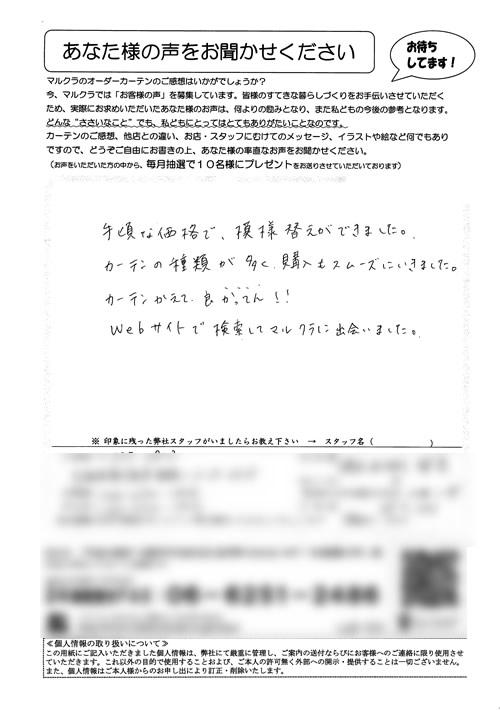 あなた様の声をお聞かせください
お待ち
してます!
マルクラのオーダーカーテンのご感想はいかがでしょうか?
今、マルクラでは「お客様の声」を募集しています。皆様のすてきな暮らしづくりをお手伝いさせていただく
ため、実際にお求めいただいたあなた様のお声は、何よりの励みとなり、また私どもの今後の参考となります。
どんな"ささいなこと"でも、私どもにとってはとてもありがたいことなのです。
カーテンのご感想、他店との違い、お店・スタッフにむけてのメッセージ、イラストや絵など何でもあり
ですので、どうぞご自由にお書きの上、あなた様の率直なお声をお聞かせください。
(お声をいただいた方の中から、毎月抽選で10名様にプレゼントをお送りさせていただいております)
手頃な価格で、模様替えができました。
カーテンの種類が多く、購入もスムーズにいきました。
カーテンかえて、良かってん!!
Webサイトで検索してマルクラに出会いました。
※ 印象に残った弊社スタッフがいましたらお教え下さい → スタッフ名 ( )
06-6251-2486
≪個人情報の取り扱いについて≫
この用紙にご記入いただきました個人情報は、弊社にて厳重に管理し、ご案内の送付ならびにお客様へのご連絡に限り使用させ
ていただきます。これ以外の目的で使用することおよび、ご本人の許可無く外部への開示・提供することは一切ございません。
また、個人情報はご本人様からのお申し出により訂正・削除いたします。